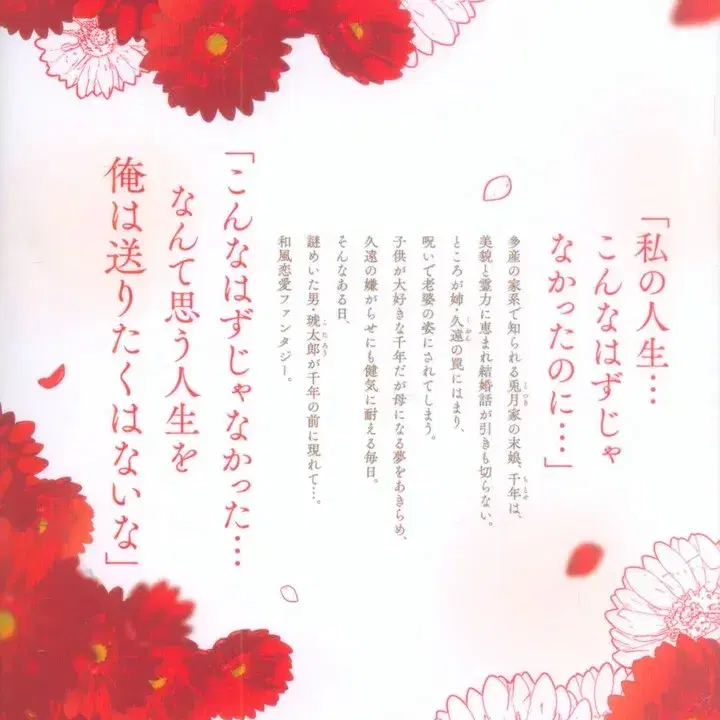 「私の人生…
こんなはずじゃ
なかったのに…」
多産の家系で知られる兎月家の末娘、千年は、
美貌と霊力に恵まれ結婚話が引きも切らない。
ところが姉・久遠の罠にはまり、
呪いで老婆の姿にされてしまう。
子供が大好きな千年だが母になる夢をあきらめ、
久遠の嫌がらせにも健気に耐える毎日。
そんなある日、
謎めいた男・琥太郎が千年の前に現れて…。
和風恋愛ファンタジー。
「こんなはずじゃなかった…
なんて思う人生を
俺は送りたくはないな」